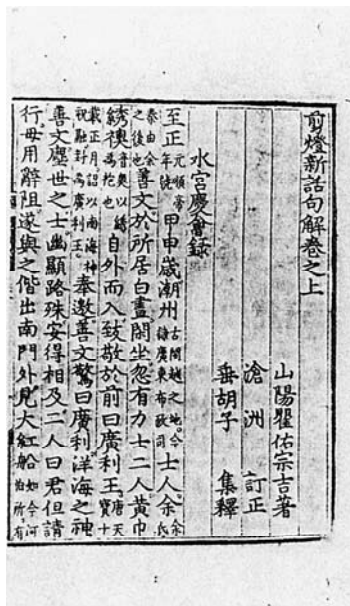 剪燈新話句解卷之上
山陽瞿佑宗吉著
滄洲訂正
垂胡子集釋
水宮慶會録
至正元順帝年號甲申歲潮州古閩越之地今隸廣東布政司士人余余氏
秦由余之後也善文於所居白晝閑坐忽有力士二人黃巾
綉襖音奥以綉爲袍也自外而入致敬於前曰廣利王唐天寶十
載正月詔以南海神祝融封爲廣利王奉邀善文驚曰廣利洋海之神
善文塵世之士幽顯路殊安得相及二人曰君但請
行毋用辭阻遂與之偕出南門外見大紅船如今河泊所有